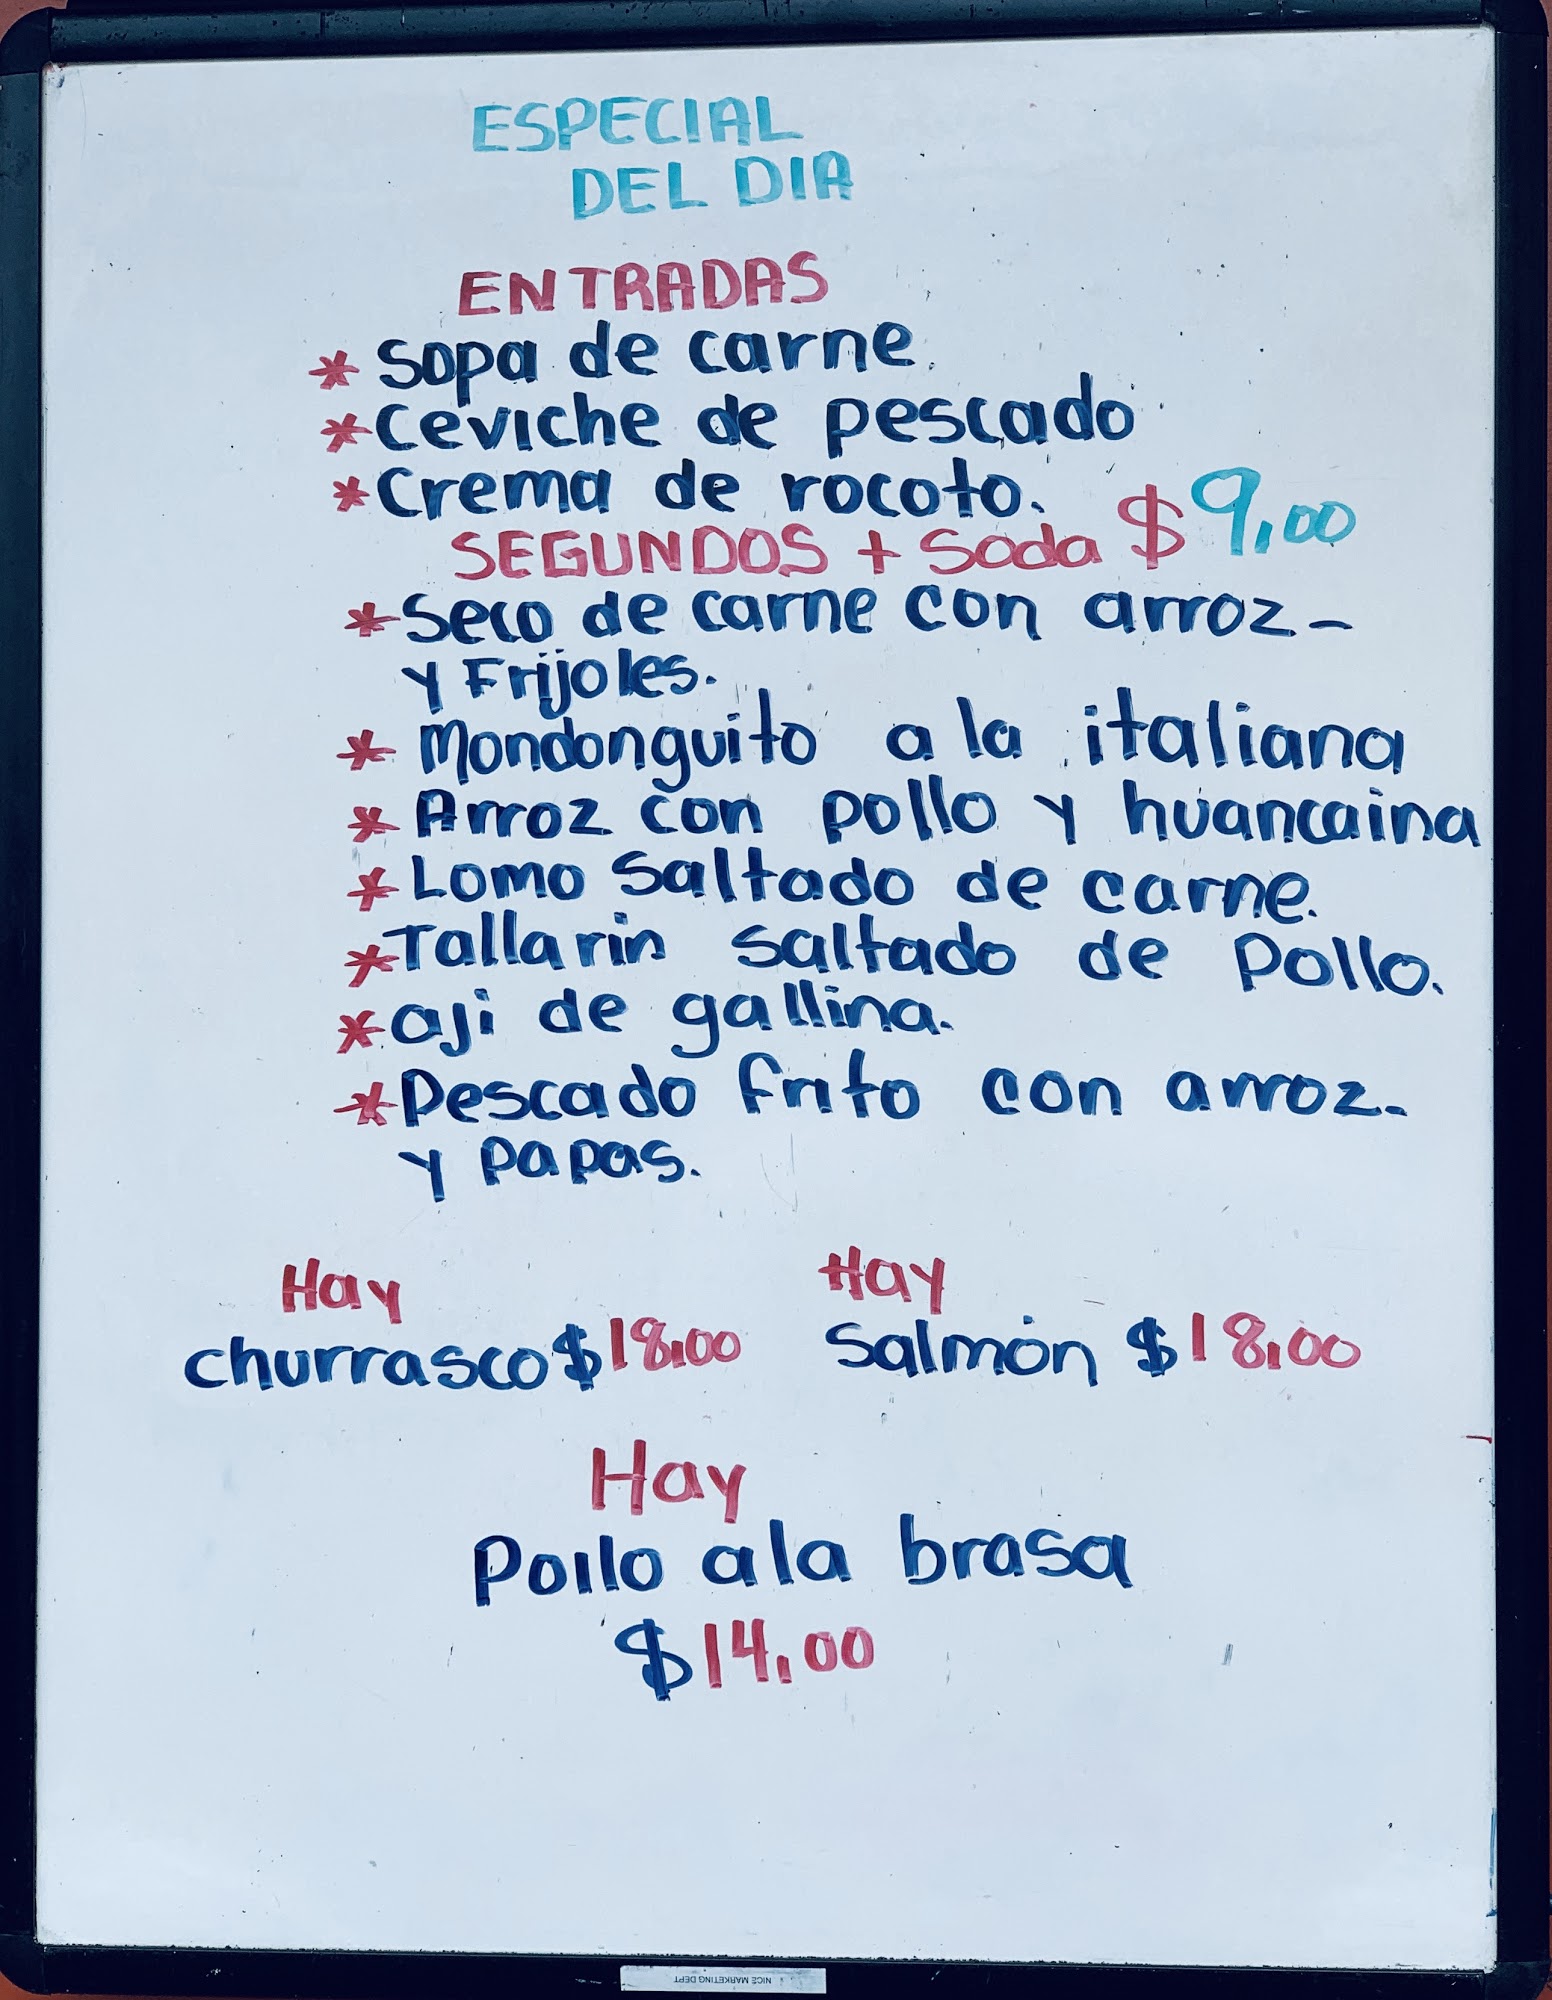 ESPECIAL
DEL DIA
ENTRADAS
* Sopa de carne.
* Ceviche de pescado
* Crema de rocoto.
SEGUNDOS + Soda $9.00
* Seco de carne con arroz -
y Frijoles.
* Mondonguito a la italiana
* Arroz con pollo y huancaina
* Lomo Saltado de carne.
* Tallarin saltado de Pollo.
* aji de gallina.
* Pescado frito con arroz -
y papas.
Hay
churrasco $18.00
Hay
Salmón $18.00
Hay
Pollo a la brasa
$14.00
NICE MARKETING DEPT